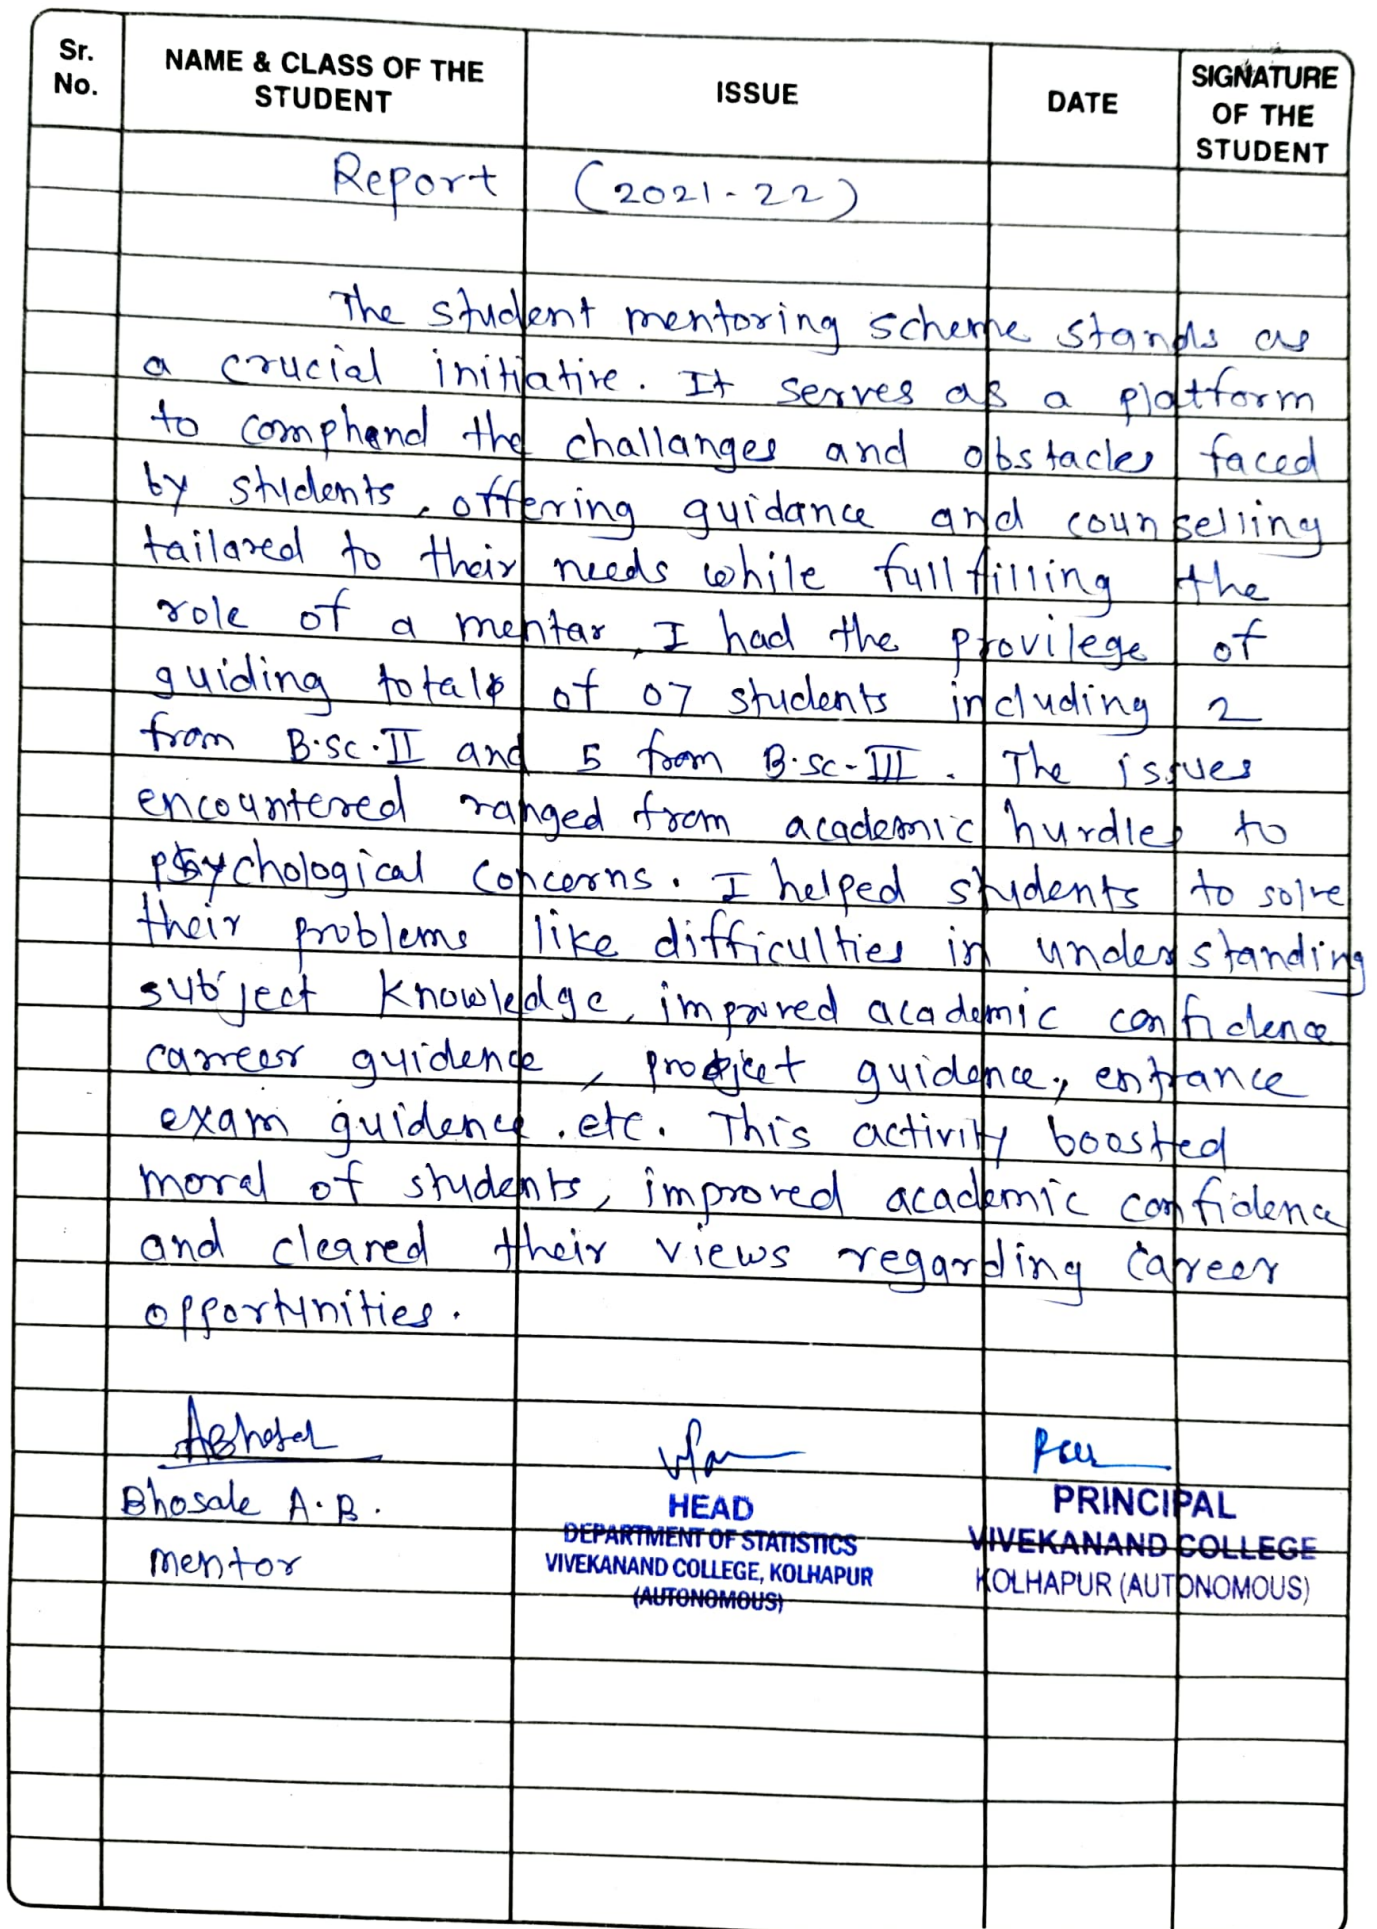 Sr. No.
NAME & CLASS OF THE STUDENT
ISSUE
DATE
SIGNATURE OF THE STUDENT
Report (2021-22)
The student mentoring scheme stands as
a crucial initiative. It serves as a platform
to comphend the challanges and obstacles faced
by students, offering guidance and counselling
tailared to their needs while fullfilling the
role of a mentar, I had the provilege of
guiding total of 07 students including 2
from B.sc.II and 5 from B.sc-III. The issues
encountered ranged from academic hurdles to
psychological concerns. I helped students to solve
their problems like difficulties in understanding
subject knowledge, improved academic confidence
carreer guidence, project guidence, entrance
exam guidence .etc. This activity boosted
moral of students, improved academic confidence
and cleared their views regarding career
opportunities.
ABhosal
Bhosale A.B.
mentor
HEAD
DEPARTMENT OF STATISTICS
VIVEKANAND COLLEGE, KOLHAPUR
(AUTONOMOUS)
PRINCIPAL
VIVEKANAND COLLEGE
KOLHAPUR (AUTONOMOUS)